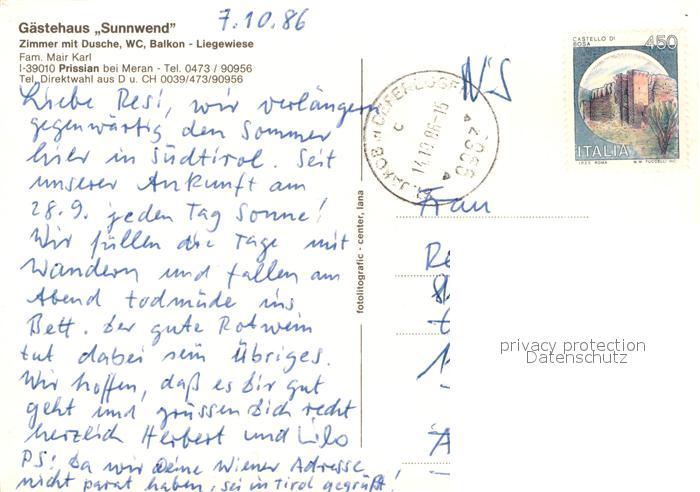 7.10.86
Gästehaus „Sunnwend"
Zimmer mit Dusche, WC, Balkon - Liegewiese
Fam. Mair Karl
I-39010 Prissian bei Meran - Tel. 0473 / 90956
Tel. Direktwahl aus D u. CH 0039/473/90956
Liebe Resi, wir verlängern
gegenwärtig den Sommer
hier in Südtirol. Seit
unserer Ankunft am
28.9. jeden Tag Sonne!
Wir füllen die Tage mit
Wandern und fallen am
Abend todmüde ins
Bett. Der gute Rotwein
tut dabei sein Übriges.
Wir hoffen, daß es Dir gut
geht und grüssen Dich recht
herzlich Herbert und Lilo
PS! Da wir Deine Wiener Adresse
nicht parat haben, sei in Tirol gegrüßt!
fotolitografic - center, lana
CASTELLO DI
BOSA
450
ITALIA
I.P.Z.S. ROMA
Frau
privacy protection
Datenschutz